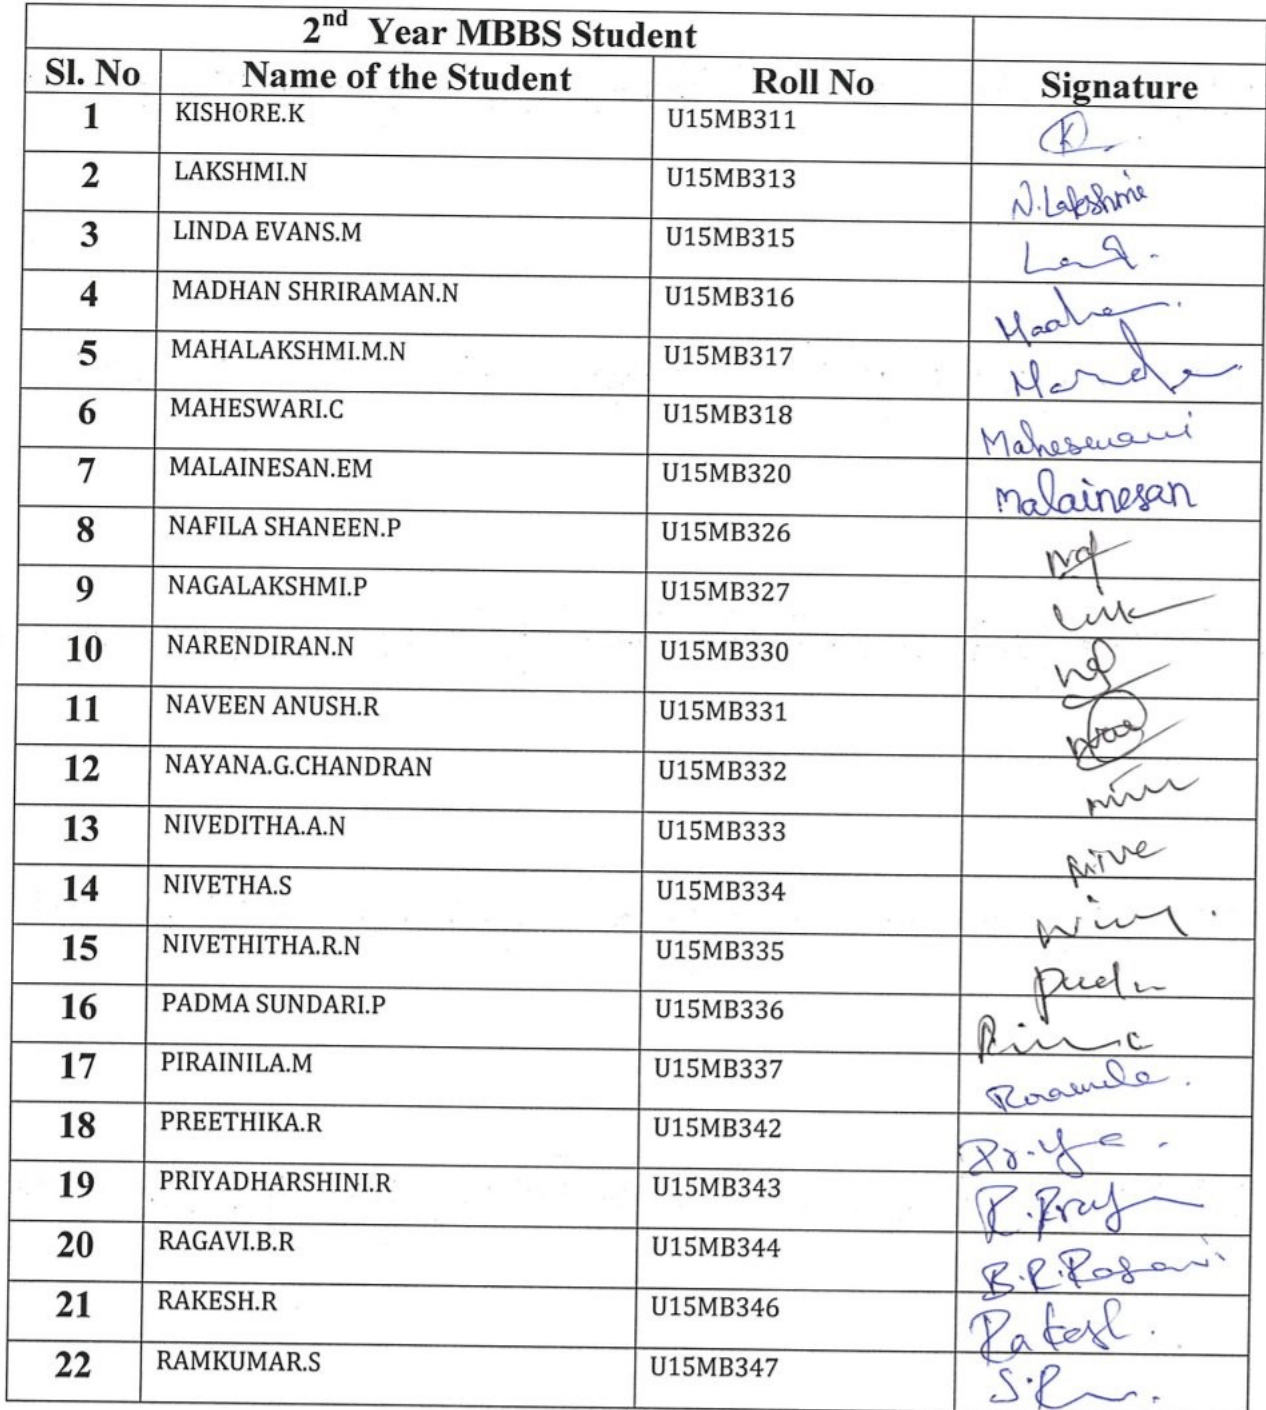 2nd Year MBBS Student
Sl. No Name of the Student Roll No Signature
1 KISHORE.K U15MB311
2 LAKSHMI.N U15MB313 N.Lakshmi
3 LINDA EVANS.M U15MB315
4 MADHAN SHRIRAMAN.N U15MB316
5 MAHALAKSHMI.M.N U15MB317
6 MAHESWARI.C U15MB318 Maheswari
7 MALAINESAN.EM U15MB320 Malainesan
8 NAFILA SHANEEN.P U15MB326
9 NAGALAKSHMI.P U15MB327
10 NARENDIRAN.N U15MB330
11 NAVEEN ANUSH.R U15MB331
12 NAYANA.G.CHANDRAN U15MB332
13 NIVEDITHA.A.N U15MB333
14 NIVETHA.S U15MB334
15 NIVETHITHA.R.N U15MB335
16 PADMA SUNDARI.P U15MB336
17 PIRAINILA.M U15MB337
18 PREETHIKA.R U15MB342
19 PRIYADHARSHINI.R U15MB343
20 RAGAVI.B.R U15MB344 B.R.Ragavi
21 RAKESH.R U15MB346 Rakesh.
22 RAMKUMAR.S U15MB347